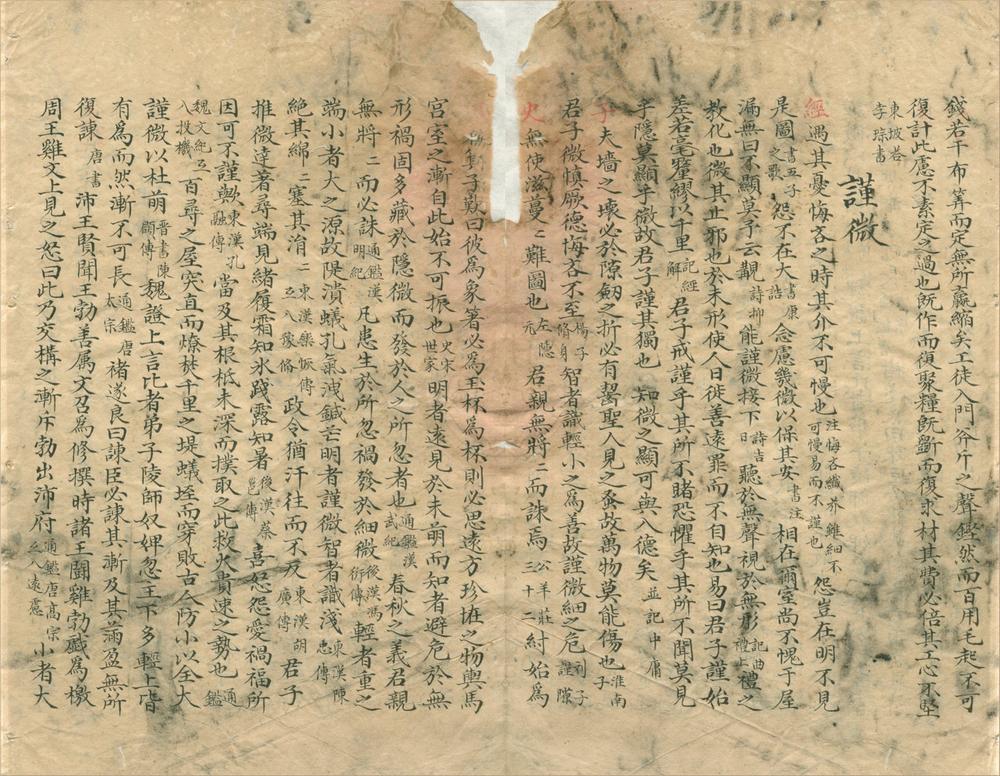 錢若干布筭而定無所贏縮矣工徒入門斧斤之聲鏗然而百用毛起不可
復計此慮不素定之過也旣作而復聚糧旣斲而復求材其費必倍其工必不堅
東坡荅李琮書
謹微
經遇其憂悔吝之時其介不可慢也注悔吝纖芥雖細不可慢易而不謹也怨豈在明不見
是圖書五子之歌怨不在大書康誥念慮幾微以保其安書注相在爾室尚不愧于屋
漏無曰不顯莫予云覯詩抑能謹微接下詩吉日聽於無聲視於無形記曲禮上禮之
教化也微其止邪也於未形使人日徙善遠罪而不自知也易曰君子謹始
差若毫釐繆以千里記經解君子戒謹乎其所不睹恐懼乎其所不聞莫見
乎隱莫顯乎微故君子謹其獨也知微之顯可與入德矣並記中庸
子夫墻之壞必於隙劒之折必有齧聖人見之蚤故萬物莫能傷也淮南子
君子微愼厥德悔吝不至揚子脩身智者識輕小之爲善故謹微細之危列子注
史無使滋蔓二難圖也左隱元君親無將二而誅焉公羊莊三十二紂始爲
箕子歎曰彼爲象箸必爲玉杯爲杯則必思遠方珍恠之物輿馬
宮室之漸自此始不可振也史宋世家明者遠見於未萌而知者避危於無
形禍固多藏於隱微而發於人之所忽者也通鑑漢武紀春秋之義君親
無將二而必誅通鑑漢明紀凡患生於所忽禍發於細微後漢馮衍傳輕者重之
端小者大之源故隄潰蟻孔氣洩鍼芒明者謹微智者識淺東漢陳忠傳
絶其綿二塞其涓二東漢樂恢傳政令猶汗往而不反東漢胡廣傳君子
推微達著尋端見緖履霜知冰踐露知暑後漢蔡邕傳喜怒怨愛禍福所
因可不謹歟東漢孔融傳當及其根柢未深而撲取之此救火貴速之勢也通鑑
魏文紀百尋之屋突直而燎㷔千里之堤蟻垤而穿敗古今防小以全大
謹微以杜萌晋書陳頵傳魏證上言比者弟子陵師奴婢忽王下多輕上皆
有爲而然漸不可長通鑑唐太宗褚遂良曰諫臣必諫其漸及其滿盈無所
復諫唐書沛王賢聞王勃善属文召爲修撰時諸王鬪雞勃戱爲檄
周王雞文上見之怒曰此乃交構之漸斥勃出沛府通鑑唐高宗小者大